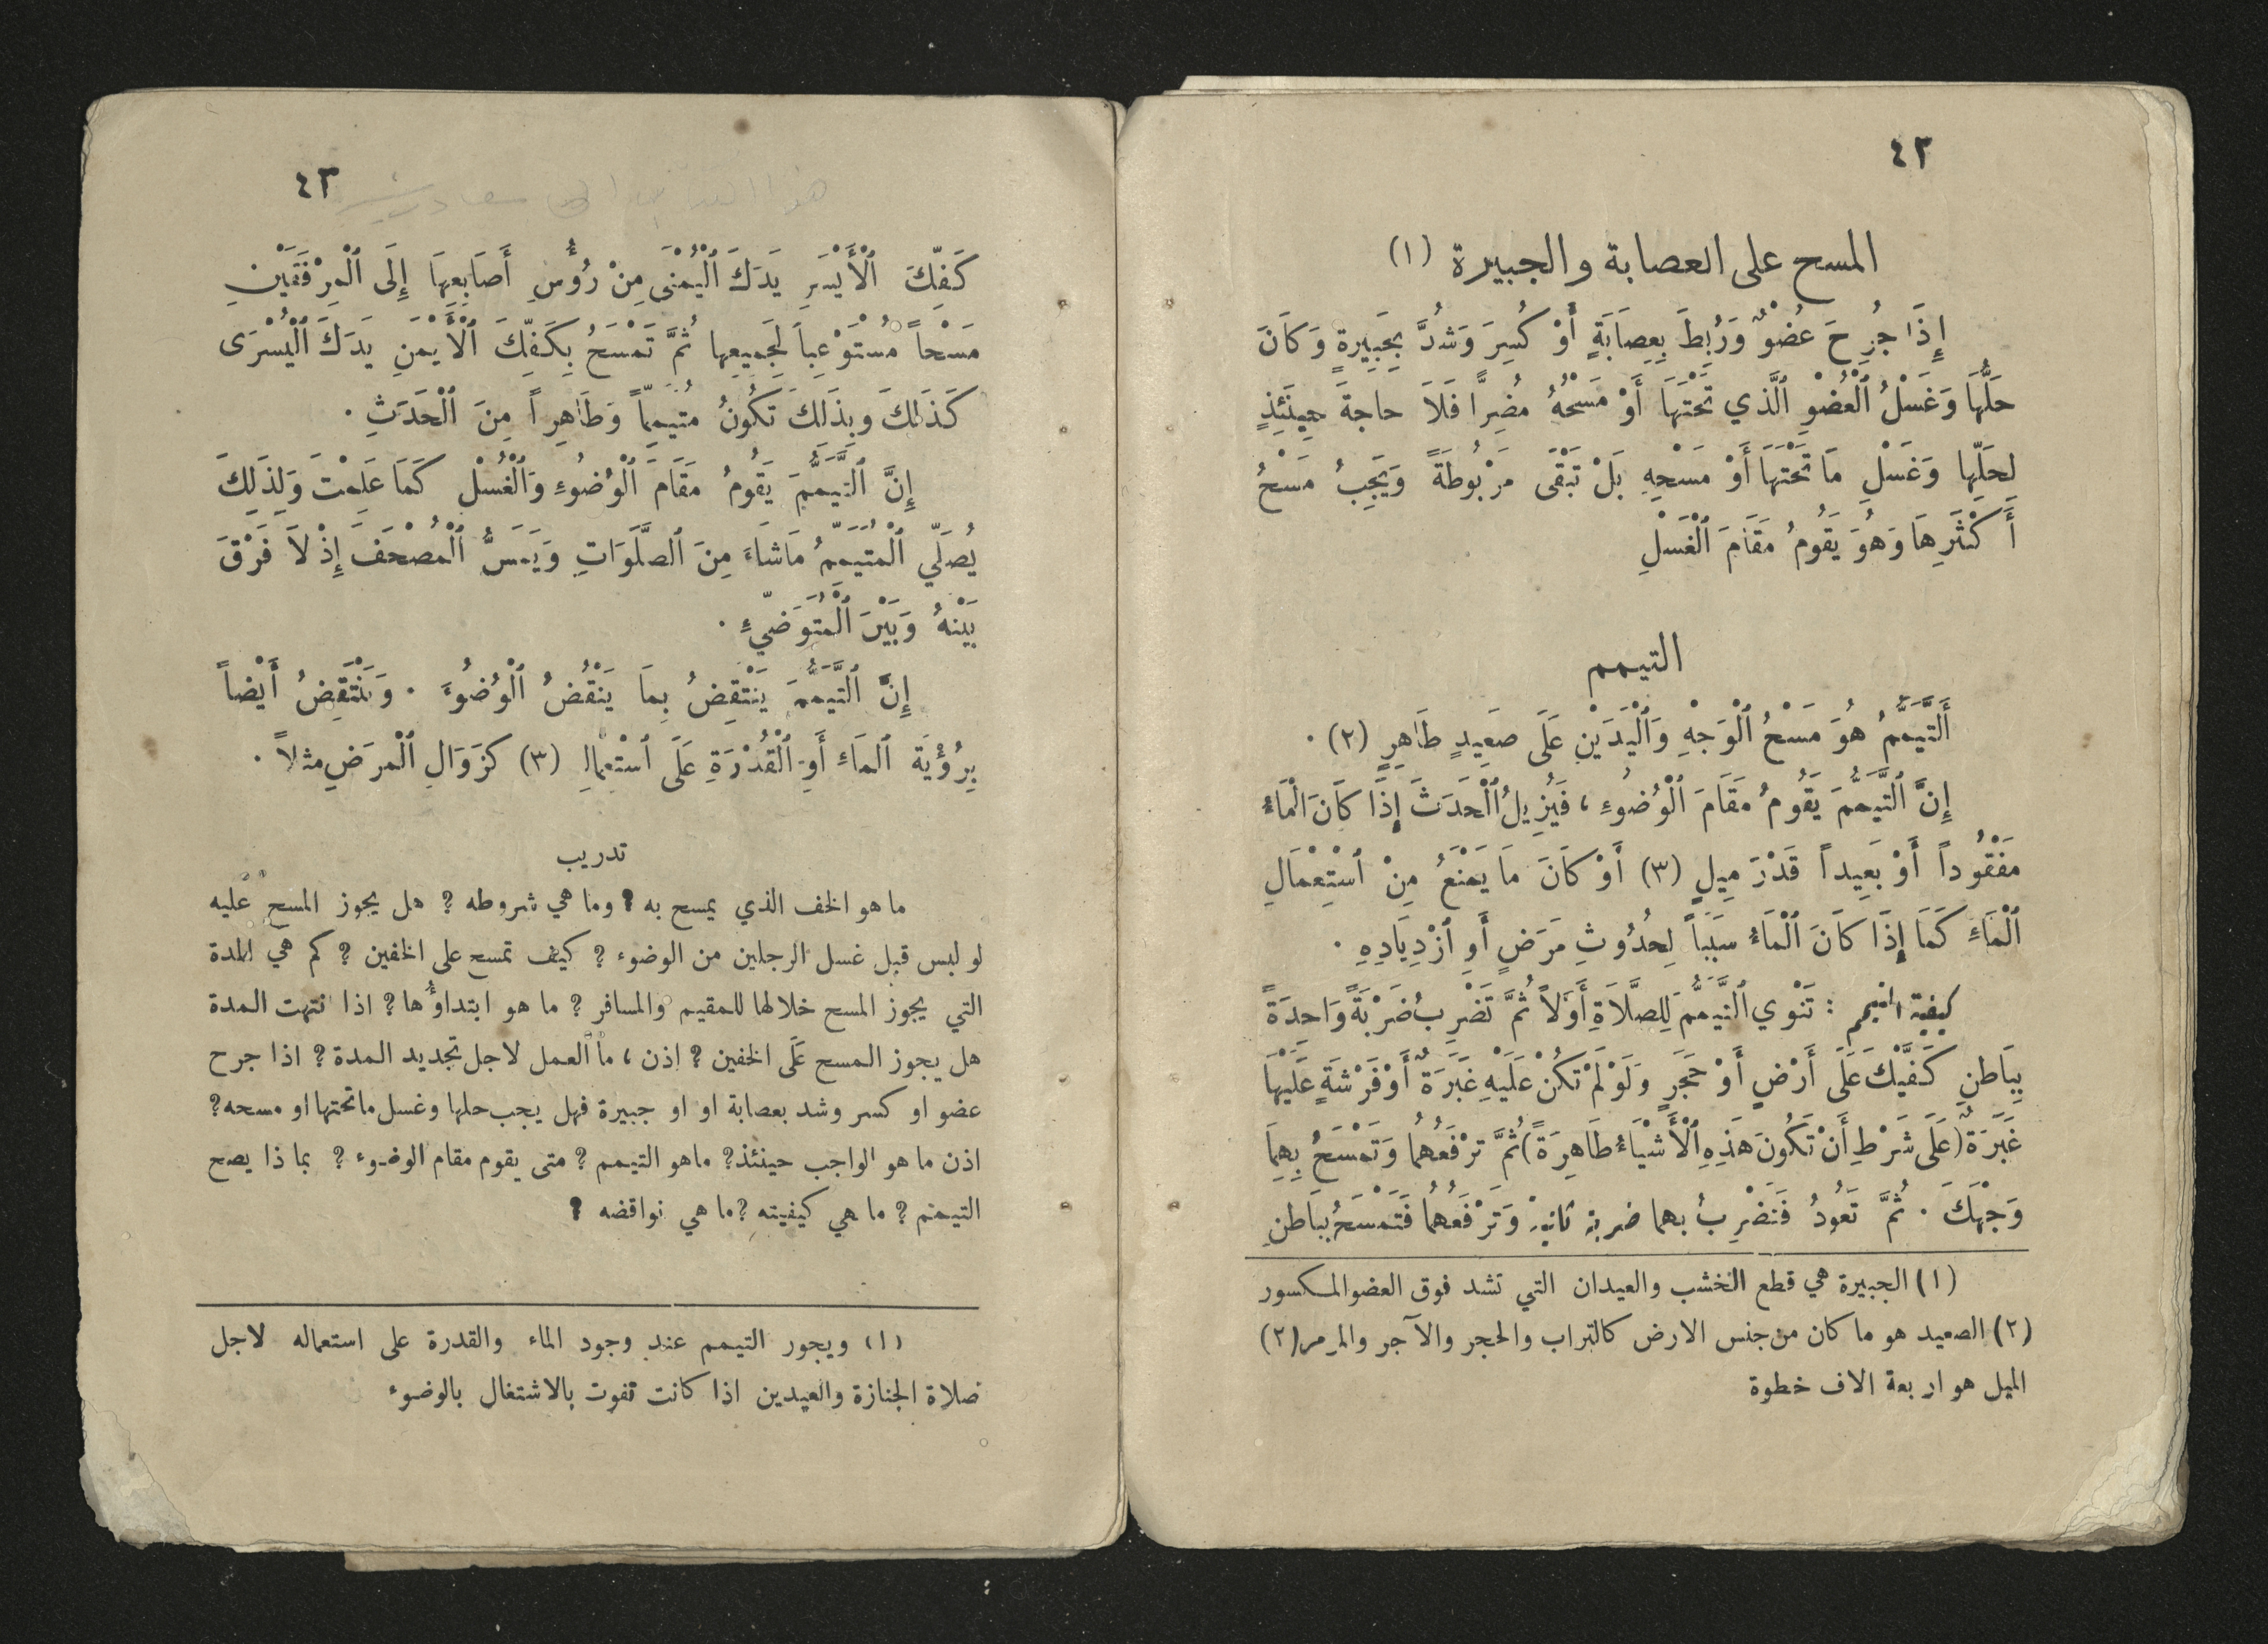 ٤٢
المسح على العصابة والجبيرة (١)
إِذَا جُرِحَ عُضْوٌ وَرُبِطَ بِعِصَابَةٍ أَوْ كُسِرَ وَشُدَّ بِجَبِيرةٍ وَكَانَ
حَلُّهَا وَغَسْلُ ٱلْعُضْوِ ٱلَّذي تَحْتَهَا أَوْ مَسْحُهُ مُضِرًّا فَلَا حاجةَ حِينَئِذٍ
لِحَلِّهَا وَغَسْلِ مَا تَحْتَهَا أَوْ مَسْحِهِ بَلْ تَبْقَى مَرْبُوطَةً وَيَجِبُ مَسْحُ
أَكْثَرِهَا وَهُوَ يَقُومُ مَقَامَ ٱلْغَسْلِ
التيمم
أَلتَّيَمُّمُ هُوَ مَسْحُ ٱلْوَجْهِ وَٱلْيَدَيْنِ عَلَى صَعِيدٍ طَاهِرٍ (٢) ·
إِنَّ ٱلتَّيَمُّمَ يَقُومُ مَقَامَ ٱلْوُضُوءِ ، فَيُزِيلُ ٱلْحَدَثَ إِذَا كَانَ الْمَاءُ
مَفْقُوداً أَوْ بَعِيداً قَدْرَ مِيلٍ (٣) أَوْ كَانَ مَا يَمْنَعُ مِنْ ٱسْتِعْمَالِ
ٱلْمَاءِ كَمَا إِذَا كَانَ ٱلْمَاءُ سَبَباً لِحُدُوثِ مَرَضٍ أَوِ ٱزْدِيَادِهِ ·
كيفية التيمم : تَنْوي ٱلتَّيَمُّمَ لِلصَّلَاةِ أَوَّلاً ثُمَّ تَضْرِبُ ضَرْبَةً وَاحِدَةً
بِبَاطنِ كَفَّيْكَ عَلَى أَرْضٍ أَوْ حَجَرٍ وَلَوْ لَمْ تَكُنْ عَلَيْهِ غَبَرَةٌ أَوْ فَرْشَةٍ عَلَيْهَا
غَبَرَةٌ (عَلَى شَرْطِ أَنْ تَكُونَ هَذِهِ ٱلْأَشْيَاءُ طَاهِرَةً) ثُمَّ تَرْفَعُهُمَا وَتَمْسَحُ بِهِمَا
وَجْهَكَ · ثُمَّ تَعُودُ فَتَضْرِبُ بهما ضربة ثانيةً وَتَرْفَعُهُمَا فَتَمْسَحُ بِبَاطنِ
(١) الجبيرة هي قطع الخشب والعيدان التي تشد فوق العضو المكسور
(٢) الصعيد هو ما كان من جنس الارض كالتراب والحجر والآجر والمرمر (٢)
الميل هو اربعة الاف خطوة
٤٣
كَفِّكَ ٱلْأَيْسَرِ يَدَكَ ٱلْيُمْنَى مِنْ رُؤُسِ أَصَابِعِهَا إِلَى ٱلْمِرْفَقَيْنِ
مَسْحاً مُسْتَوْعِباً لِجَمِيعِها ثُمَّ تَمْسَحُ بِكَفِّكَ ٱلْأَيْمَنِ يَدَكَ ٱلْيُسْرَى
كَذَلكَ وبِذَلكَ تَكُونُ مُتَيَمِّماً وَطَاهِراً مِنَ ٱلْحَدَثِ ·
إِنَّ ٱلتَّيَمُّمَ يَقُومُ مَقَامَ ٱلْوُضُوءِ وَٱلْغُسْلِ كَمَا عَلِمْتَ وَلِذَلِكَ
يُصَلِّي ٱلْمُتَيَمِّمُ مَا شَاءَ مِنَ ٱلصَّلَوَاتِ وَيَمَسُّ ٱلْمُصْحَفَ إِذْ لاَ فَرْقَ
بَيْنَهُ وَبَيْنَ ٱلْمُتَوَضِّيءِ ·
إِنَّ ٱلتَّيَمُّمَ يَنْتَقِضُ بِمَا يَنْقُضُ ٱلْوُضُوءَ · وَيَنْتَقِضُ أَيْضاً
بِرُؤْيَةِ ٱلمَاءِ أَوِ ٱلْقُدْرَةِ عَلَى ٱسْتْعِمالِهِ (٣) كزَوَالِ ٱلْمرَضِ مثلاً ·
تدريب
ما هو الخف الذي يمسح به ? وما هي شروطه ? هل يجوز المسح عليه
لو لبس قبل غسل الرجلين من الوضوء ? كيف تمسح على الخفين ? كم هي المدة
التي يجوز المسح خلالها للمقيم والمسافر ? ما هو ابتداؤُها ? اذا انتهت المدة
هل يجوز المسح عَلَى الخفين ? اذن ، ما العمل لاجل تجديد المدة ? اذا جرح
عضو او كسر وشد بعصابة او او جبيرة فهل يجب حلها وغسل ماتحتها او مسحه ?
اذن ما هو الواجب حينئذ ? ماهو التيمم ? متى يقوم مقام الوضوء ? بما ذا يصح
التيمم ? ما هي كيفيته ? ما هي نواقضه ?
(١) ويجور التيمم عند وجود الماء والقدرة على استعماله لاجل
صلاة الجنازة والعيدين اذا كانت تفوت بالاشتغال بالوضوء